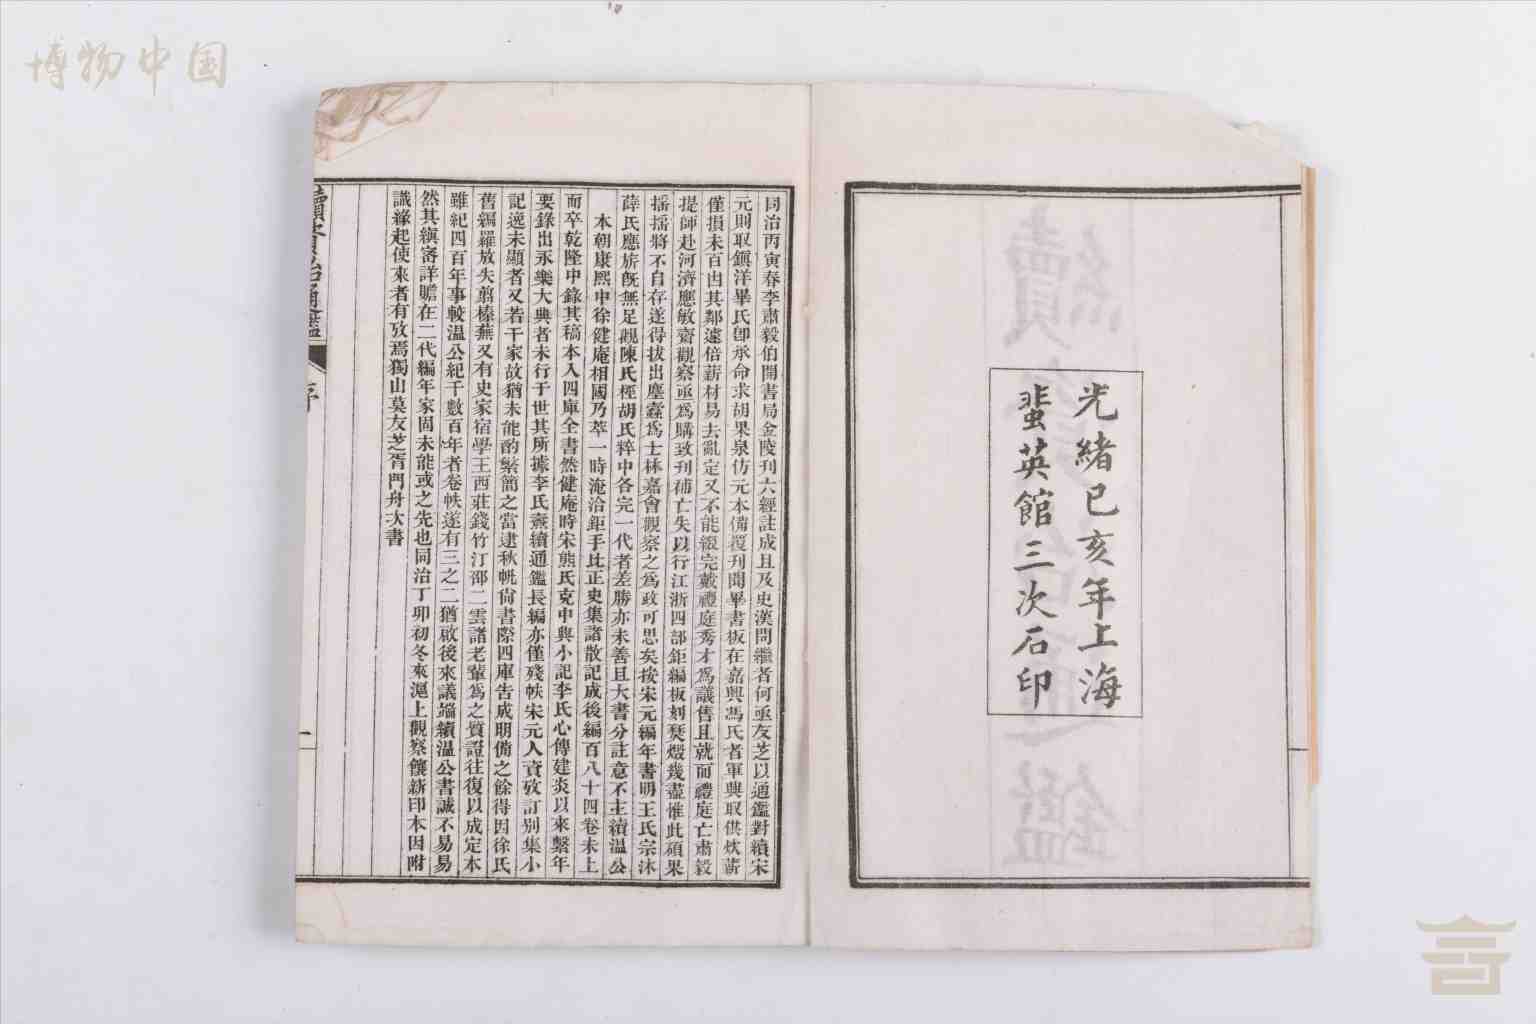 博物中国
光緒己亥年上海
蜚英館三次石印
同治丙寅春李肅毅伯開書局金陵刊六經註成且及史漢問繼者何亟友芝以通鑑對續宋
元則取鎮洋畢氏卽承命求胡果泉仿元本備覆刊聞畢書板在嘉興馮氏者軍興取供炊薪
僅損未百出其鄰速倍薪材易去亂定又不能綴完戴禮庭秀才為議售且就而禮庭亡肅毅
提師赴河濟應敏齋觀察亟為購致刊補亡失以行江浙四部鉅編板刻焚燬幾盡惟此碩果
搖搖將不自存遂得拔出塵蠹為士林嘉會觀察之為政可思矣按宋元編年書明王氏宗沐
薛氏應旂旣無足觀陳氏桱胡氏粹中各完一代者差勝亦未善且大書分註意不主續溫公
本朝康熙中徐健庵相國乃萃一時淹洽鉅手比正史集諸散記成後編百八十四卷未上
而卒乾隆中錄其稿本入四庫全書然健庵時宋熊氏克中興小記李氏心傳建炎以來繫年
要錄出永樂大典者未行于世其所據李氏燾續通鑑長編亦僅殘帙宋元人資攷訂別集小
記逸未顯者又若干家故猶未能酌繁簡之當逮秋帆尚書際四庫告成朙備之餘得因徐氏
舊編羅放失翦榛蕪又有史家宿學王西莊錢竹汀邵二雲諸老輩為之質證往復以成定本
雖紀四百年事較溫公紀千數百年者卷帙遂有三之二猶啟後來議端續溫公書誠不易易
然其縝審詳贍在二代編年家固未能或之先也同治丁卯初冬來滬上觀察饟新印本因附
識緣起使來者有攷焉獨山莫友芝胥門舟次書
續資治通鑑
序
一